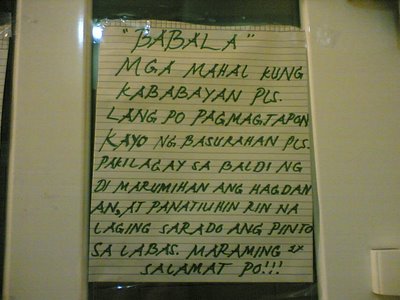 "BABALA"
MGA MAHAL KUNG
KABABAYAN PLS.
LANG PO PAGMAGTAPON
KAYO NG BASURAHAN PLS.
PAKILAGAY SA BALDI NG
DI MARUMIHAN ANG HAGDAN
AN, AT PANATILIHIN RIN NA
LAGING SARADO ANG PINTO
SA LABAS. MARAMING 2X
SALAMAT PO!!!